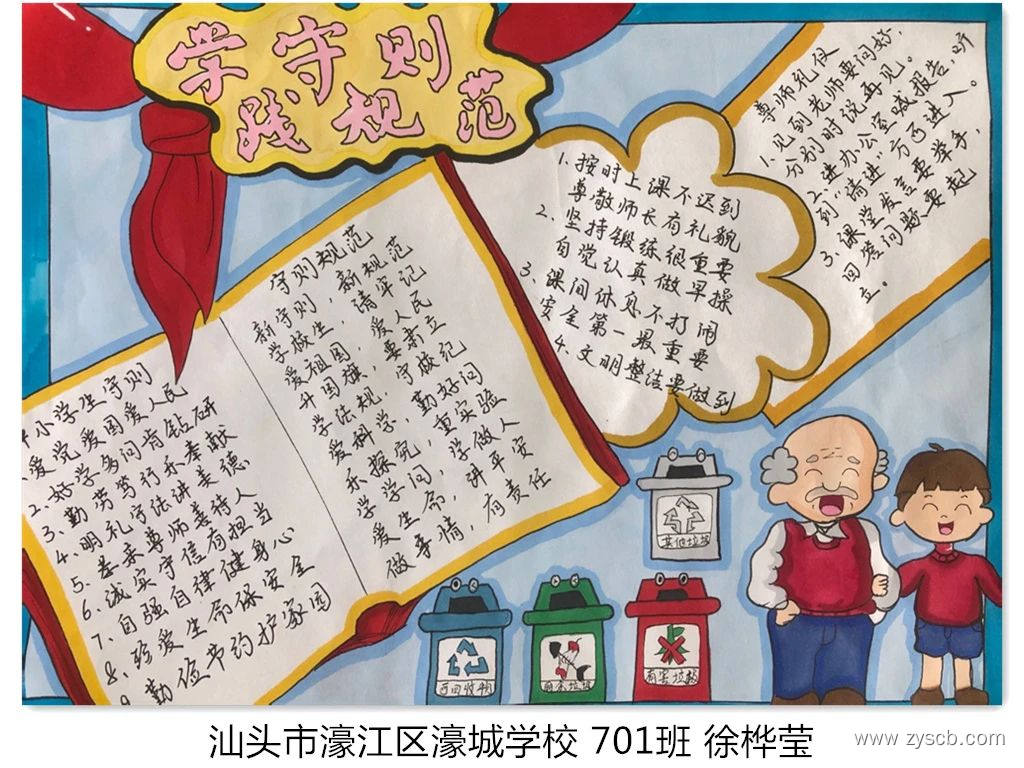 学守则
践规范
中小学生守则
1、爱党爱国爱人民
2、好学多问肯钻研
3、勤劳笃行乐奉献
4、明礼守法讲美德
5、孝亲尊师善待人
6、诚实守信有担当
7、自强自律健身心
8、珍爱生命保安全
9、勤俭节约护家园
守则规范
新守则，新规范
学校生，请牢记
爱祖国，爱人民
升国旗，要肃立
学法规，守校纪
爱科学，勤好问
乐探究，重实验
学学问，学做人
爱生命，讲平安
做事情，有责任
1、按时上课不迟到
尊敬师长有礼貌
2、坚持锻练很重要
自觉认真做早操
3、课间休息不打闹
安全第一最重要
4、文明整洁要做到
尊师礼仪
1、见到老师要问好，
分别时说再见。
2、进办公室喊报告，听
到“请进”方可进入。
3、课堂发言要举手，
回答问题要起
立。
其他垃圾
可回收物
有害垃圾
汕头市濠江区濠城学校 701班 徐桦莹
www.zyscb.com